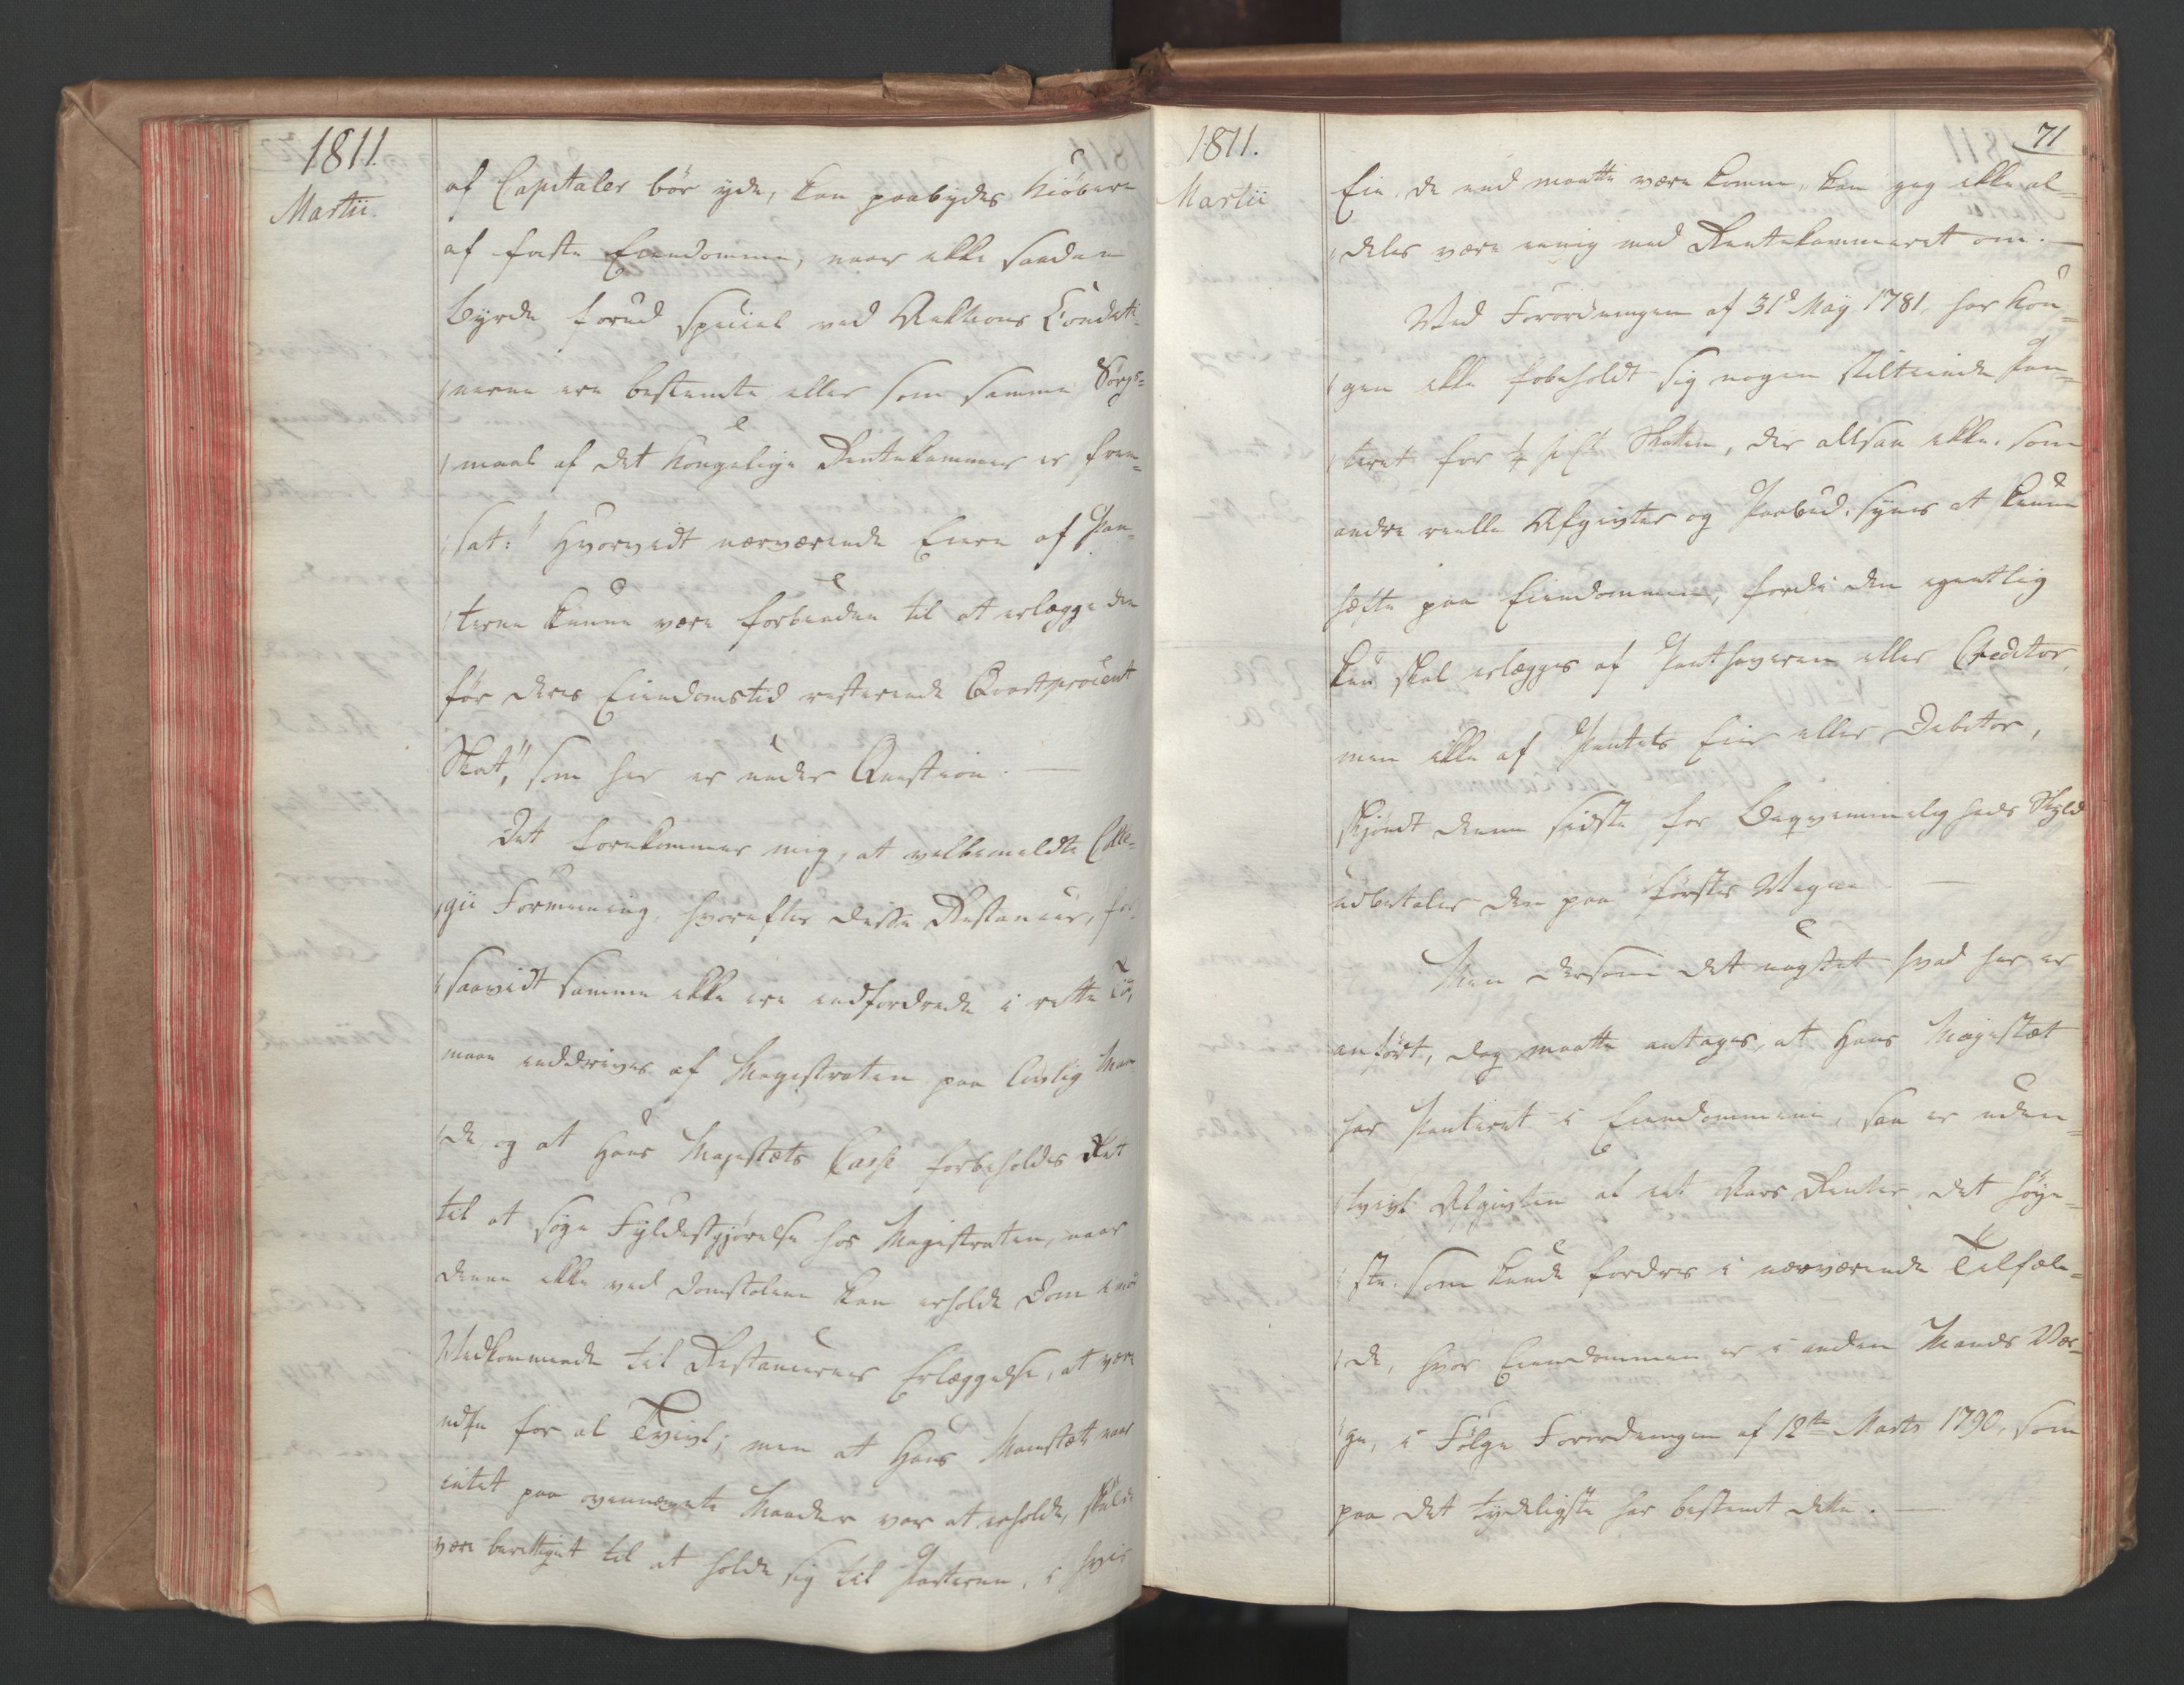 1811.
Martii.
af Capitaler bör yde, kan paabydes Kiöbere
af faste Eiendomme, naar ikke saadan
Byrde forud speciel ved Auktions Conditi-
onerne ere bestemte eller som samme Sörgs-
maal af det kongelige Rentekammer er frem-
sat: "Hvorvidt nærværende Eiere af Pan-
terne kunne være forbunden til at erlægge den
för deres Eiendomstid resterende Qvartprocent
Skat," som her er under Qvæstion. —
Det forekommer mig, at velbemeldte Colle-
gii Formening, hvorefter disse Restancer, for
saavidt samme ikke ere indfordrede i rette Tid,
maae inddrives af Magistraten paa lovlig Maa-
de, og at Hans Majestæts Casse forbeholdes Ret
til at söge Fyldestgjörelse hos Magistraten, naar
denne ikke ved Domstolene kan erholde Dom over
Vedkommende til Restancernes Erlæggelse, at være
udsat for al Tvivl; men at Hans Majestæt, naar
intet paa ovennævnte Maader var at erholde, skulde
være berettiget til at holde sig til Panterne, i hvis
1811.
Martii
71
Eie de end maatte være komne, kan jeg ikke al-
deles være eenig med Rentekammeret om. —
Ved Forordningen af 31d May 1781, har Kon-
gen ikke forbeholdt sig nogen stiltiende Pan-
teret for ¼ pCt Skatten, der altsaa ikke, som
andre reelle Afgivter og Paabud, synes at kunne
hæfte paa Eiendommen, fordi den egentlig
kun skal erlægges af Panthaveren eller Creditor,
men ikke af Pantets Eier eller Debitor,
skjöndt denne sidste for Beqvemmeligheds Skyld
udbetaler den paa förstes Vegne. —
Men dersom det uagtet hvad her er
anfört, dog maatte antages, at Hans Majestæt
har Panteret i Eiendommene, saa er uden-
tvivl Afgivten af eet Aars Renter det höye-
ste, som kunde fordres i nærværende Tilfæl-
de, hvor Eiendommen er i anden Mands Vær-
ge, i Fölge Forordningen af 12te Marts 1790, som
paa det tydeligste har bestemt dette. —